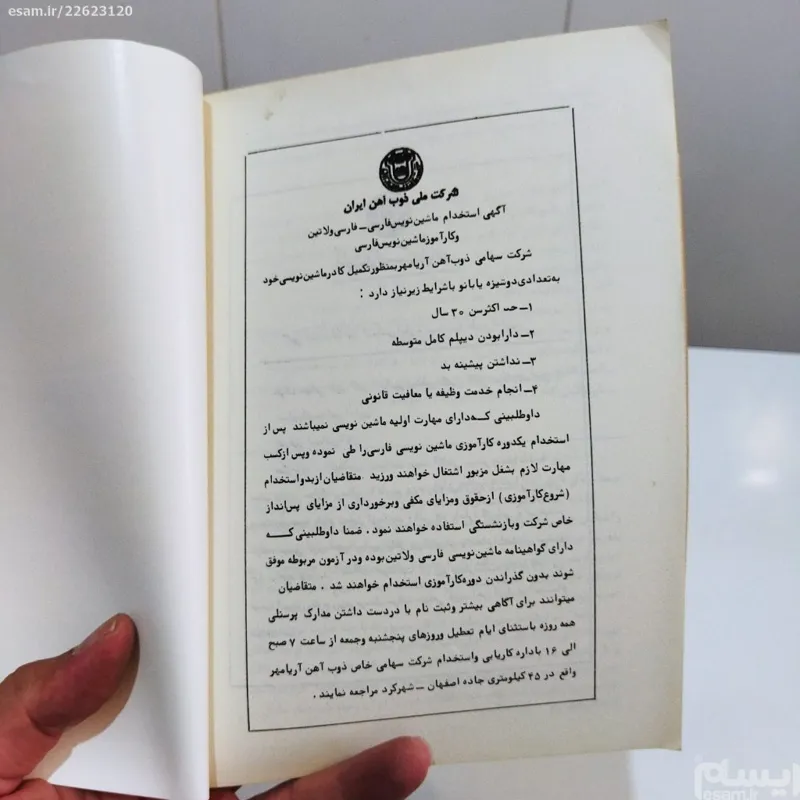 esam.ir/22623120
شرکت ملی ذوب آهن ایران
آگهی استخدام ماشین نویس فارسی ــ فارسی ولاتین
وکارآموزماشین نویس فارسی
شرکت سهامی ذوب آهن آریامهر بمنظور تکمیل کادر ماشین نویسی خود
به تعدادی دوشیزه یا بانو با شرایط زیر نیاز دارد :
۱ــ حد اکثر سن ۳۰ سال
۲ــ دارا بودن دیپلم کامل متوسطه
۳ــ نداشتن پیشینه بد
۴ــ انجام خدمت وظیفه یا معافیت قانونی
داوطلبینی که دارای مهارت اولیه ماشین نویسی نمیباشند پس از
استخدام یکدوره کارآموزی ماشین نویسی فارسی را طی نموده وپس از کسب
مهارت لازم بشغل مزبور اشتغال خواهند ورزید متقاضیان از بدو استخدام
(شروع کارآموزی) از حقوق ومزایای مکفی وبرخورداری از مزایای پس انداز
خاص شرکت وبازنشستگی استفاده خواهند نمود . ضمنا داوطلبینی که
دارای گواهینامه ماشین نویسی فارسی ولاتین بوده ودر آزمون مربوطه موفق
شوند بدون گذراندن دوره کارآموزی استخدام خواهند شد . متقاضیان
میتوانند برای آگاهی بیشتر وثبت نام با دردست داشتن مدارک پرسنلی
همه روزه باستثنای ایام تعطیل وروزهای پنجشنبه وجمعه از ساعت ۷ صبح
الی ۱۶ باداره کاریابی واستخدام شرکت سهامی خاص ذوب آهن آریامهر
واقع در ۴۵ کیلومتری جاده اصفهان ــ شهرکرد مراجعه نمایند .
ایسام
esam.ir